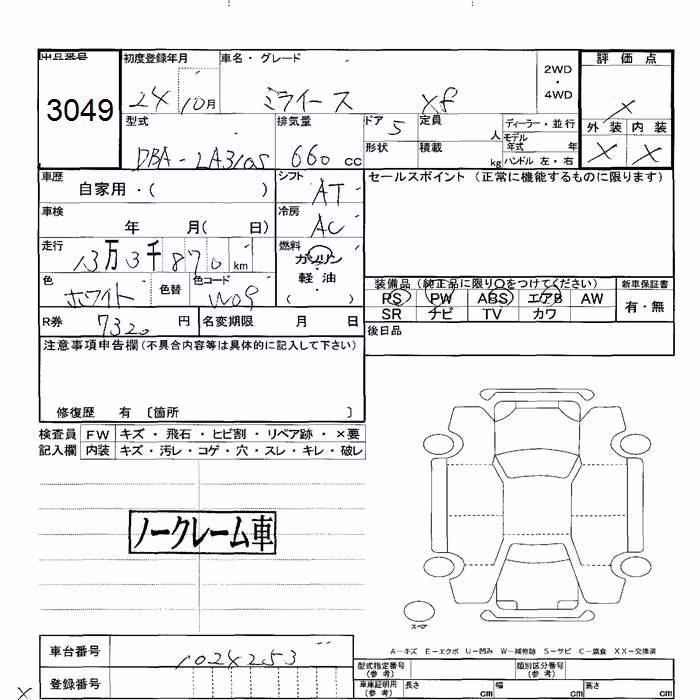 出品番号
3049
初度登録年月
24 10月
車名・グレード
ミライース Xf
2WD
・
4WD
評価点
X
外装 内装
X X
型式
DBA-LA310S
排気量
660 cc
ドア 5
定員 人
形状
積載 kg
ディーラー・並行
モデル年式 年
ハンドル 左・右
車歴
自家用・( )
シフト
AT
セールスポイント (正常に機能するものに限ります)
車検
年 月( 日)
冷房
AC
走行
13万3千870 km
燃料
ガソリン
・
軽油
( )
色
ホワイト
色替
色コード
W09
装備品 (純正品に限り○をつけてください)
新車保証書
PS PW ABS エアB AW
有・無
SR ナビ TV カワ
R券 7320 円
名変期限 月 日
後日品
注意事項申告欄(不具合内容等は具体的に記入して下さい)
修復歴 有 〔箇所 〕
検査員
記入欄
FW キズ・飛石・ヒビ割・リペア跡・×要
内装 キズ・汚レ・コゲ・穴・スレ・キレ・破レ
ノークレーム車
スペア
A-キズ E-エクボ U-凹み W-補修跡 S-サビ C-腐食 XX-交換済
車台番号 1024253
登録番号
型式指定番号
(参考)
類別区分番号
(参考)
車庫証明用
(参考)
長さ cm
幅 cm
高さ cm
X